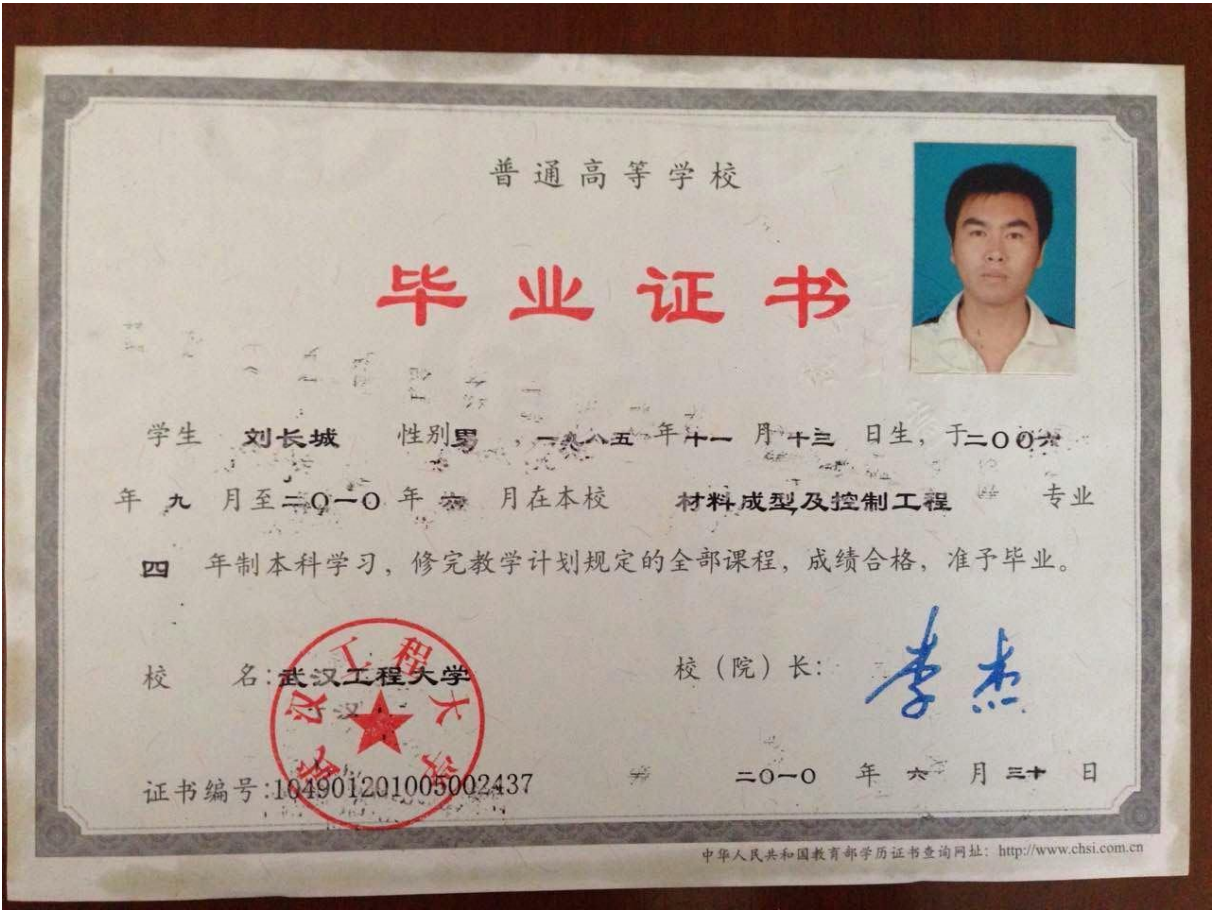 普通高等学校
毕业证书
学生 刘长城 性别男,一九八五年十一月十三日生,于二〇〇六
年九月至二〇一〇年六月在本校 材料成型及控制工程 专业
四年制本科学习,修完教学计划规定的全部课程,成绩合格,准予毕业。
校 名:武汉工程大学
武汉工程大学
校(院)长:李杰
证书编号:104901201005002437
二〇一〇年六月三十日
中华人民共和国教育部学历证书查询网址:http://www.chsi.com.cn